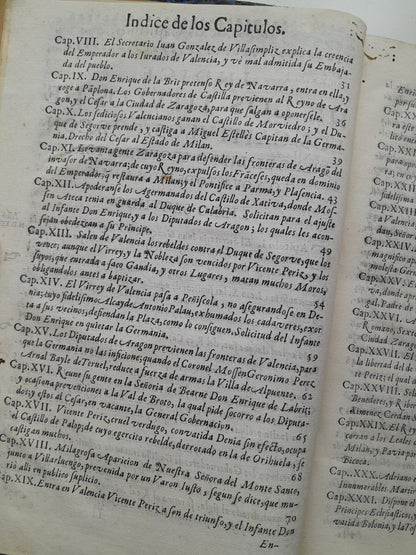 Indice de los Capitulos.
Cap. VIII. El Secretario Iuan Gonzalez de Villasimpliz explica la creencia
del Emperador a los Iurados de Valencia, y vè mal admitida su Embaja-
da del pueblo. 31
Cap. IX. Don Enrique de la Brit pretenso Rey de Navarra, entra en ella, y
coge a Pãplona, Los Governadores de Castilla previenen al Reyno de Ara-
gon, y el Cesar a la Ciudad de Zaragoza, para que salgan a oponersele. 36
Cap. X. Los sediciosos Valencianos ganan el Castillo de Morviedro; y el Du-
que de Segorve prende, y castiga a Miguel Estellès Capitan de la Germa-
nia. Drecho del Cesar al Estado de Milan. 39
Cap. XI. Levanta gente Zaragoza para defender las fronteras de Aragõ del
invasor de Navarra; cuyo Reyno, expulsos los Frãceses, queda en dominio
del Emperador; que restaura a Milan, y el Pontifice a Parma, y Plasencia. 43
Cap. XII. Apoderanse los Agermanados del Castillo de Xativa, donde Mos-
sen Ateca tenia en guarda al Duque de Calabria. Solicitan para el ajuste
al Infante Don Enrique, y a los Diputados de Aragon; los quales les acon-
sejan obedezcan a su Principe. 49
Cap. XIII. Salen de Valencia los rebeldes contra el Duque de Segorve, que los
vence; aunque el Virrey, y la Nobleza son vencidos por Vicente Periz, y los
suyos; que entrando a saco Gandia, y otros Lugares, matan muchos Moros,
obligandolos antes a baptizar. 54
Cap. XIV. El Virrey de Valencia passa a Peñiscola, no assegurandose en De-
nia; cuyo fidelissimo Alcayde Antonio Palau, exhumados los cadaveres, exor
ta a sus vecinos, defiendan la Plaza, como lo consiguen. Solicitud del Infante
Don Enrique en quietar la Germania. 59
Cap. XV. Los Diputados de Aragon previenen las fronteras de Valencia, para
que la Germania no las inficione; quando el Coronel Mossen Geronimo Perez
Arnal Bayle de Teruel, reduce a fuerza de armas la Villa de Alpuente. 62
Cap. XVI. Reune su gente en la Señoria de Bearne Don Enrique de Labrit;
y ocasiona prevenciones a la Val de Broto, la qual pide socorro a los Diputa-
dos; y estos al Cesar, en vacante, la General Governacion. 65
Cap. XVII. Vicente Periz, cruel verdugo, convatida Denia sin efecto, ocupa
el Castillo de Palop; de cuyo exercito rebelde, derrotado en la de Orihuela, se
castigan muchos. 68
Cap. XVIII. Milagrosa Aparicion de Nuestra Señora del Monte Santo,
junto a Villarluengo, prevenida por un Varon Iusto, segun se dice, que mu-
riò alli en publico suplicio. 70
Cap. XIX. Entra en Valencia Vicente Periz a son de triunfo, y el Infante Don
En-